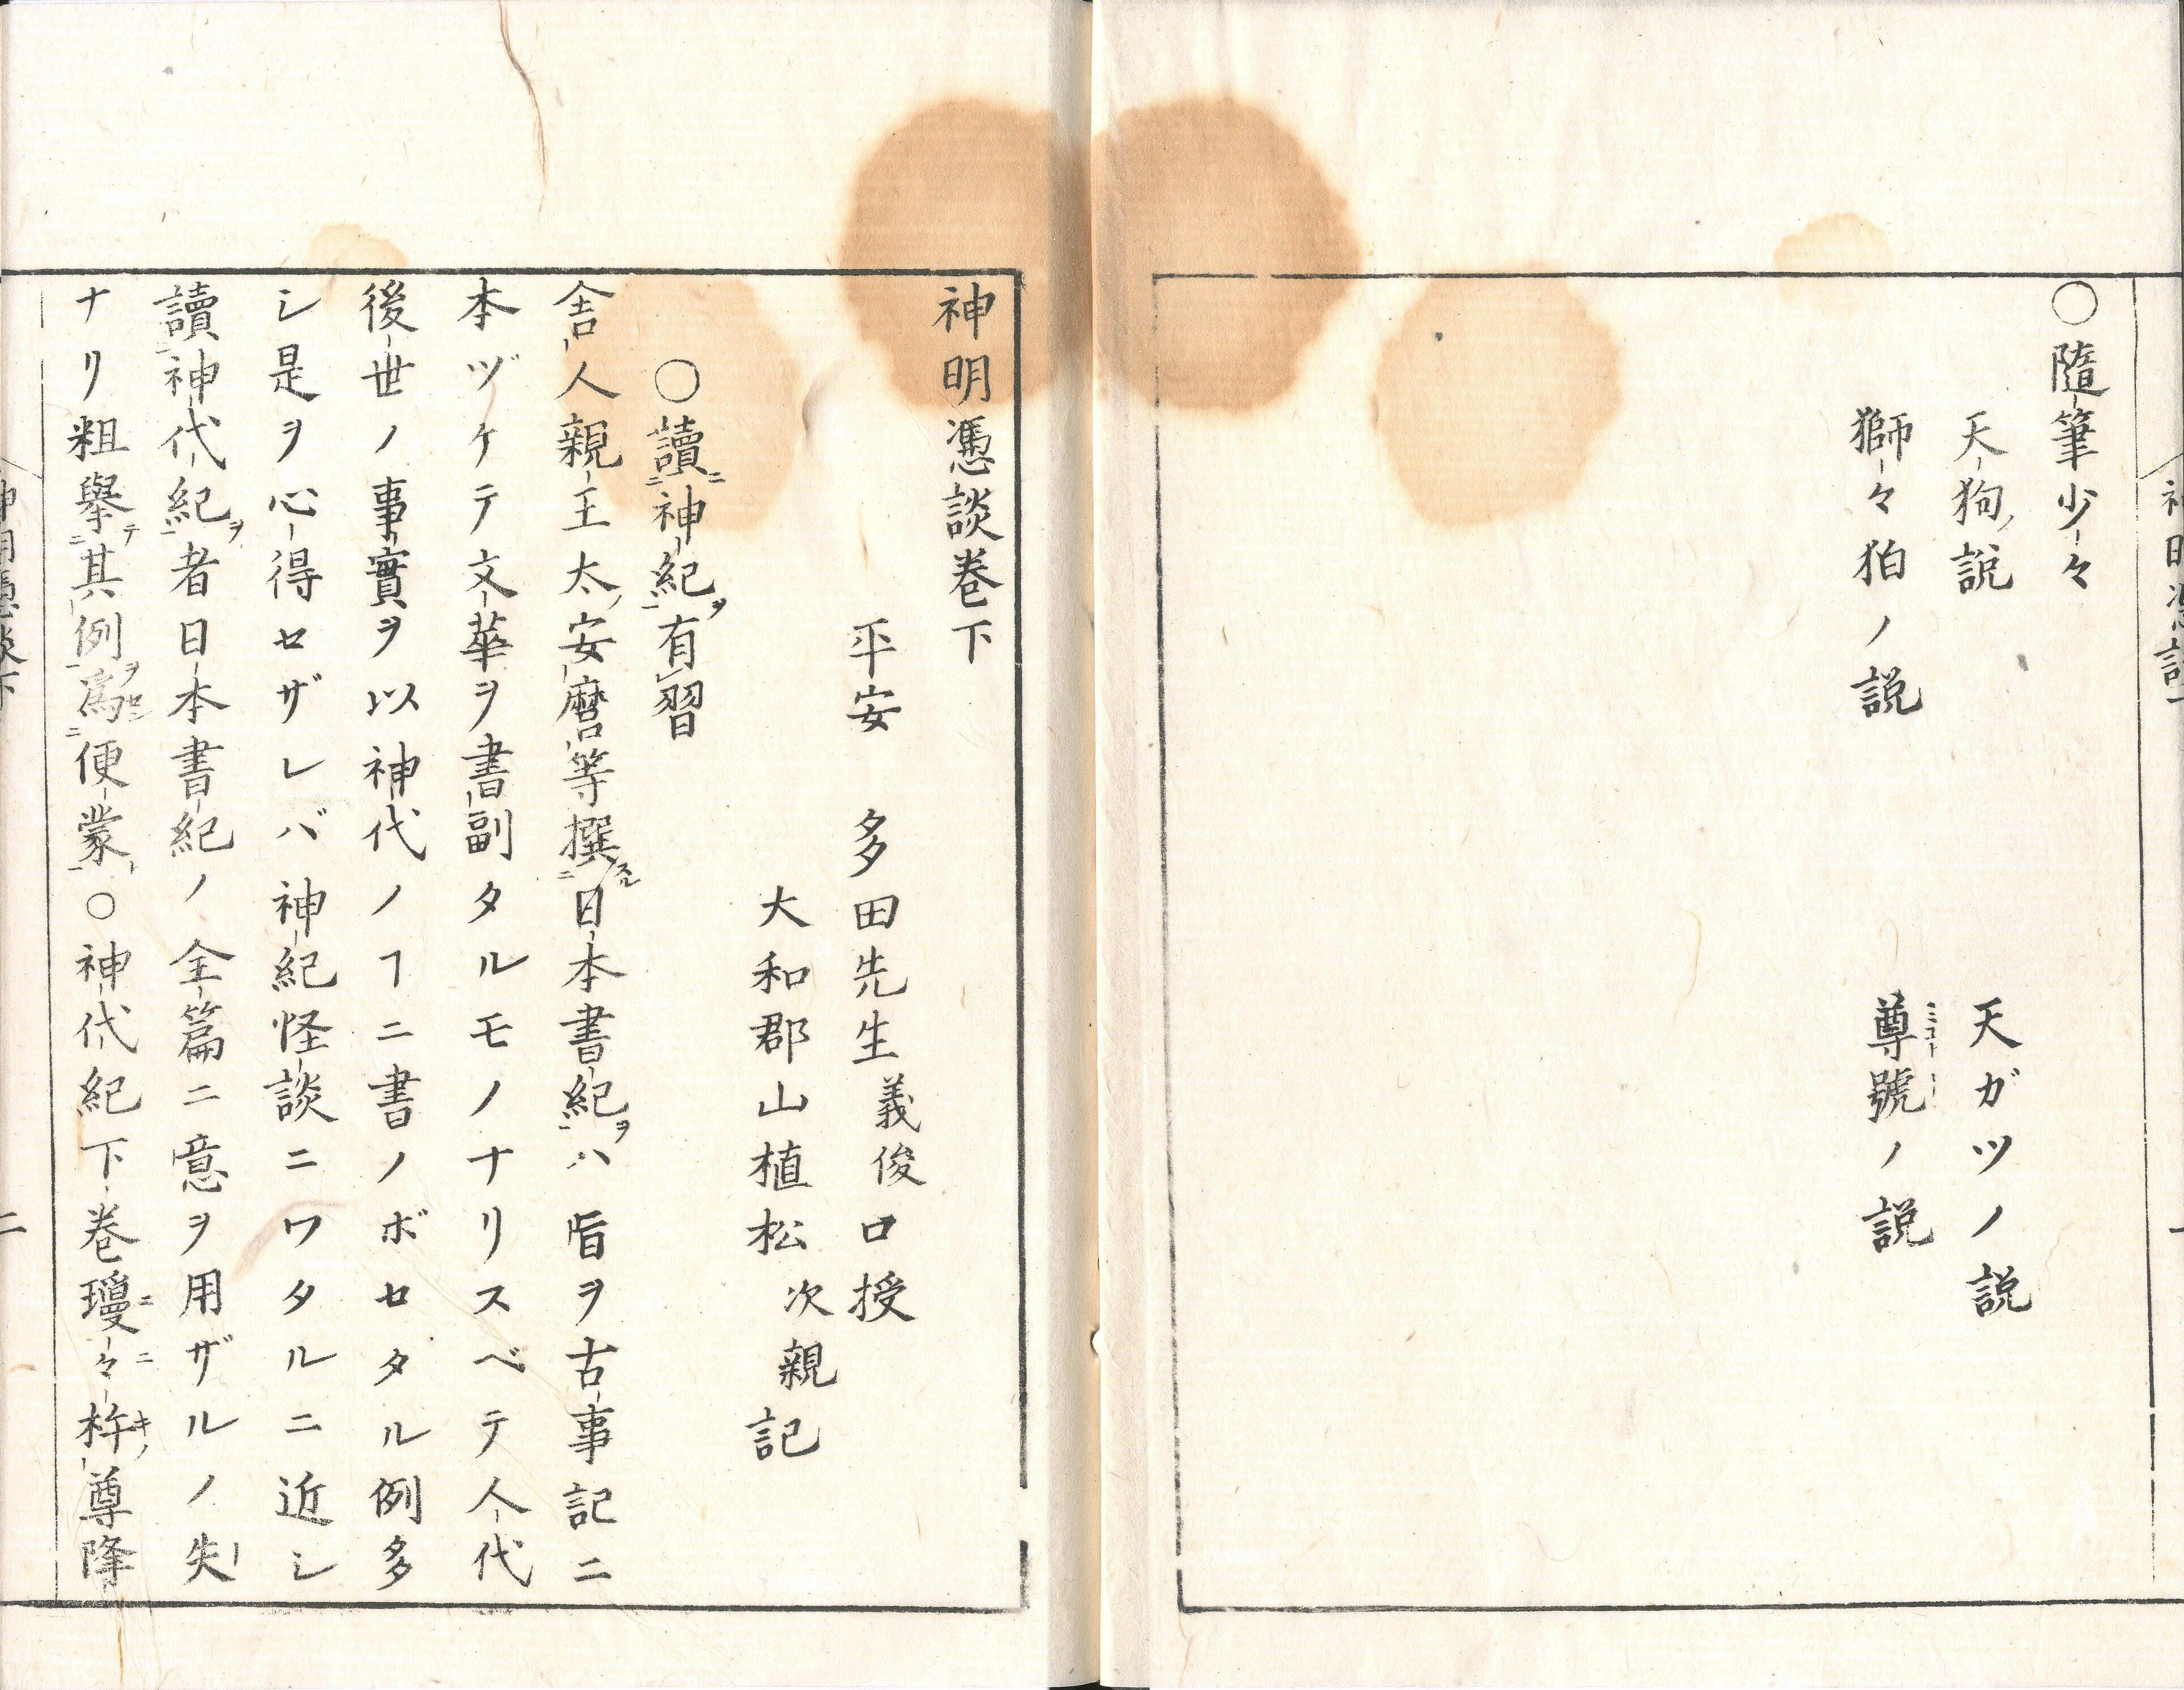 ○隨筆少々
天狗ノ説
天ガツノ説
獅々狛ノ説
尊號ノ説
神明憑談巻下
平安 多田先生義俊口授
大和郡山植松次親記
○讀神紀有習
舎人親王太安麿等撰日本書紀ハ旨ヲ古事記ニ
本ヅケテ文華ヲ書副タルモノナリスベテ人代
後世ノ事實ヲ以神代ノヿニ書ノボセタル例多
シ是ヲ心得セザレバ神紀怪談ニワタルニ近シ
讀神代紀者日本書紀ノ全篇ニ意ヲ用ザルノ失
ナリ粗擧其例爲便蒙○神代紀下巻瓊々杵尊降